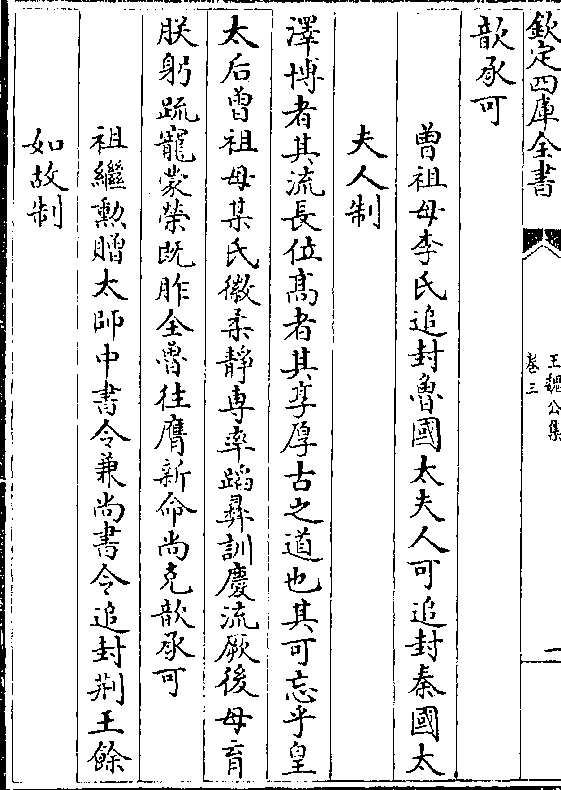 欽定四庫全書
王魏公集
卷三
一
歆承可
曽祖母李氏追封魯國太夫人可追封秦國太
夫人制
澤博者其流長位髙者其享厚古之道也其可忘乎皇
太后曽祖母某氏徽柔靜専率蹈彞訓慶流厥後母育
朕躬疏寵蒙榮既胙全魯往膺新命尚克歆承可
祖繼勲贈太師中書令兼尚書令追封荆王餘
如故制